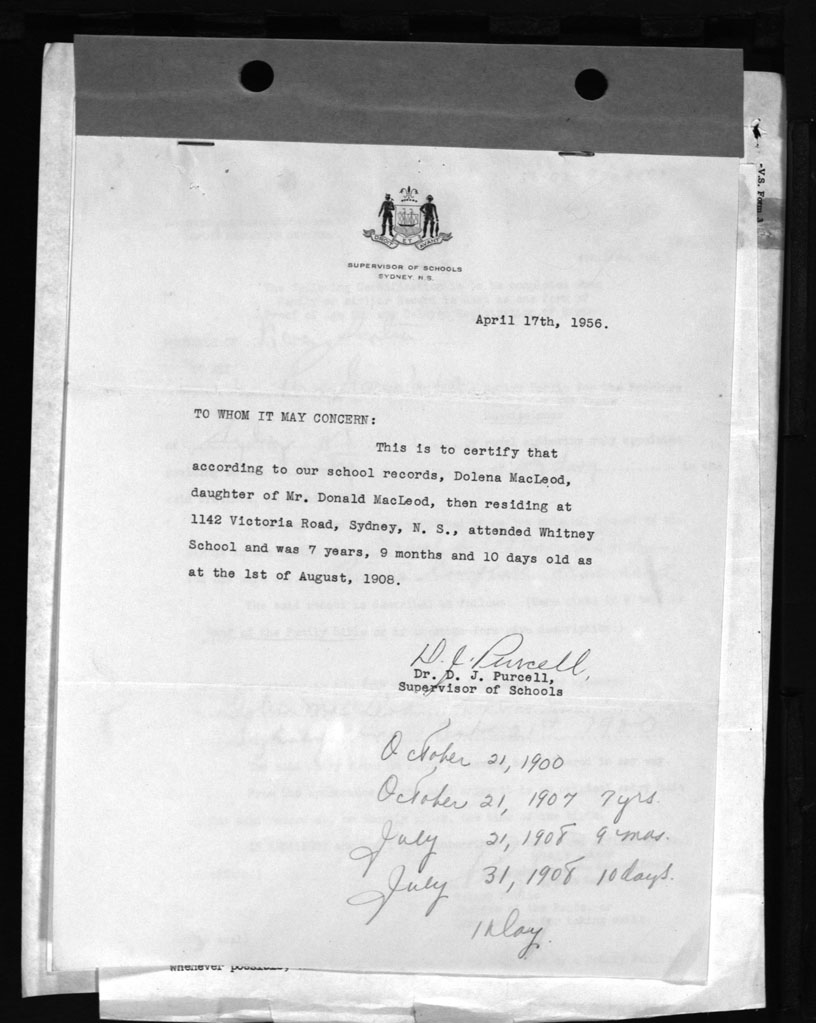 -V.S. Form 3
SUPERVISOR OF SCHOOLS
SYDNEY, N. S.
April 17th, 1956.
TO WHOM IT MAY CONCERN:
This is to certify that
according to our school records, Dolena MacLeod,
daughter of Mr. Donald MacLeod, then residing at
1142 Victoria Road, Sydney, N. S., attended Whitney
School and was 7 years, 9 months and 10 days old as
at the 1st of August, 1908.
D. J. Purcell,
Dr. D. J. Purcell,
Supervisor of Schools
October 21, 1900
October 21, 1907 7 yrs.
July 21, 1908 9 mos.
July 31, 1908 10 days.
1 Day.
whenever possible,